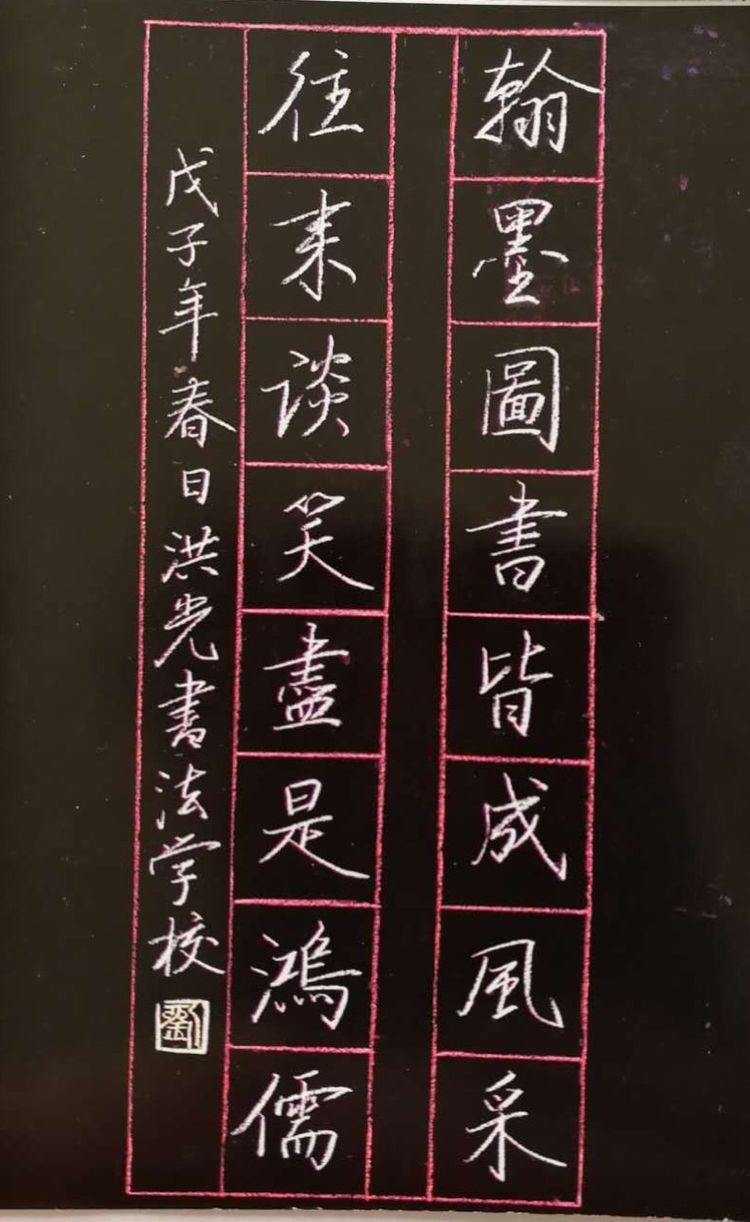 翰墨圖書皆成風采
往来谈笑盡是鴻儒
戊子年春日洪光書法学校
劉